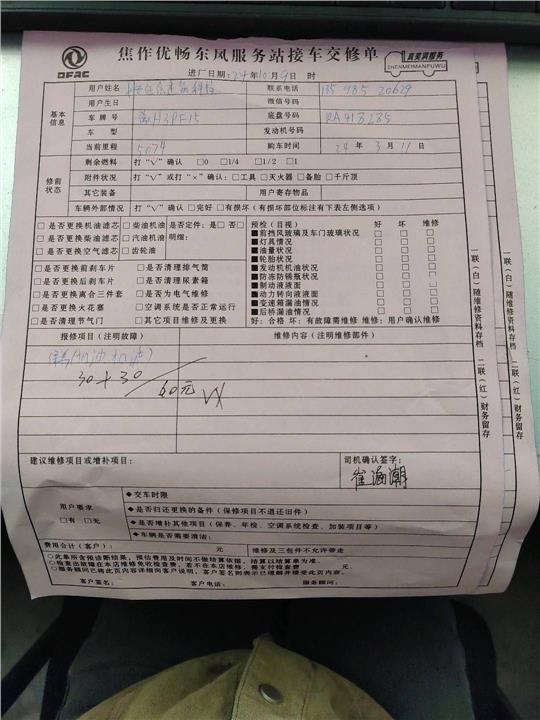 DFAC
焦作优畅东风服务站接车交修单
真美满服务
ZHENMEIMANFUWU
进厂日期:24年10月9日 时
基本信息
用户姓名
联系电话 135 985 20629
用户生日 微信号码
车牌号 豫H3PF15 底盘号码 RA418285
车型 发动机号码
当前里程 5074 购车时间 24年3月11日
修前状态
剩余燃料 打“√”确认 □0 □1/4 □1/2 □1
附件状况 打“√”或打“×”确认:□工具 □灭火器 □备胎 □千斤顶
其它装备 用户寄存物品
车辆外部情况 打“√”确认 □完好 □有损坏(有损坏部位标注有下表左侧选项)
□是否更换机油滤芯 □柴油机油 □是否定件:是□ 否□
□是否更换柴油滤芯 □汽油机油 明细:
□是否更换空气滤芯 □齿轮油
□是否更换前刹车片 □是否清理排气筒
□是否更换后刹车片 □是否清理尿素箱
□是否更换离合三件套 □是否为电气维修
□是否更换火花塞 □空调系统是否正常运行
□是否清理节气门 □其它项目维修及更换
预检(目视) 好 坏 维修
■前挡风玻璃及车门玻璃状况 □ □ □
■灯具情况 □ □ □
■油量状况 □ □ □
■轮胎状况 □ □ □
■发动机机油状况 □ □ □
■防冻防锈瓶状况 □ □ □
■制动液液面 □ □ □
■动力转向液液面 □ □ □
■变速箱漏油情况 □ □ □
■后桥漏油情况 □ □ □
好:合格 坏:有故障需维修 维修:用户确认维修
报修项目(注明故障) 维修内容(注明维修部件)
30+30
60元
建议维修项目或增补项目:
司机确认签字:
崔海潮
用户要求
□有 □无
◆交车时限
◆是否归还更换的备件(保修项目不退还旧件)
◆是否增补其他项目(保养、年检、空调系统检查、加装项目等)
◆车辆是否需要清洁:
费用合计(客户): 元 维修及三包件不允许带走
○此单所含预诊断结果,预估费用及时间不做结算依据,结算以结算单为准。
○检查出故障在本店维修,免收检查费,若不在本店维修,需支付检查费 元。
○服务顾问已将此页内容详细向客户说明,客户签名则表示已理解并接受此页内容。
客户签名: 客户电话: 服务顾问:
一联(白)随维修资料存档 二联(红)财务留存
一联(白)随维修资料存档 二联(红)财务留存